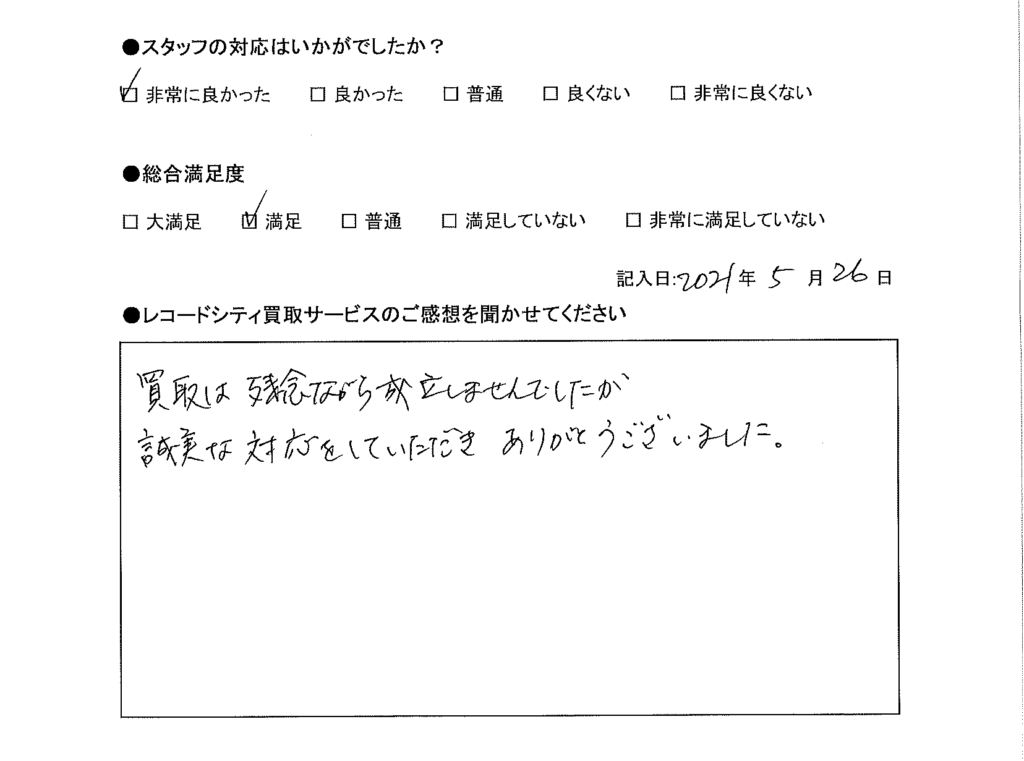 ●スタッフの対応はいかがでしたか？
☑ 非常に良かった □ 良かった □ 普通 □ 良くない □ 非常に良くない
●総合満足度
□ 大満足 ☑ 満足 □ 普通 □ 満足していない □ 非常に満足していない
記入日:2021年 5 月 26 日
●レコードシティ買取サービスのご感想を聞かせてください
買取は 残念ながら成立しませんでしたが
誠実な対応をしていただき ありがとうございました。